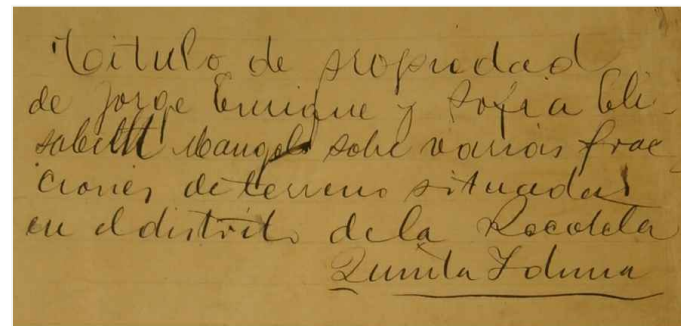 Titulo de propiedad
de Jorge Enrique y Sofia Eli-
sabeth Mangels sobre varias frac-
ciones de terreno situadas
en el distrito de la Recoleta
Quinta